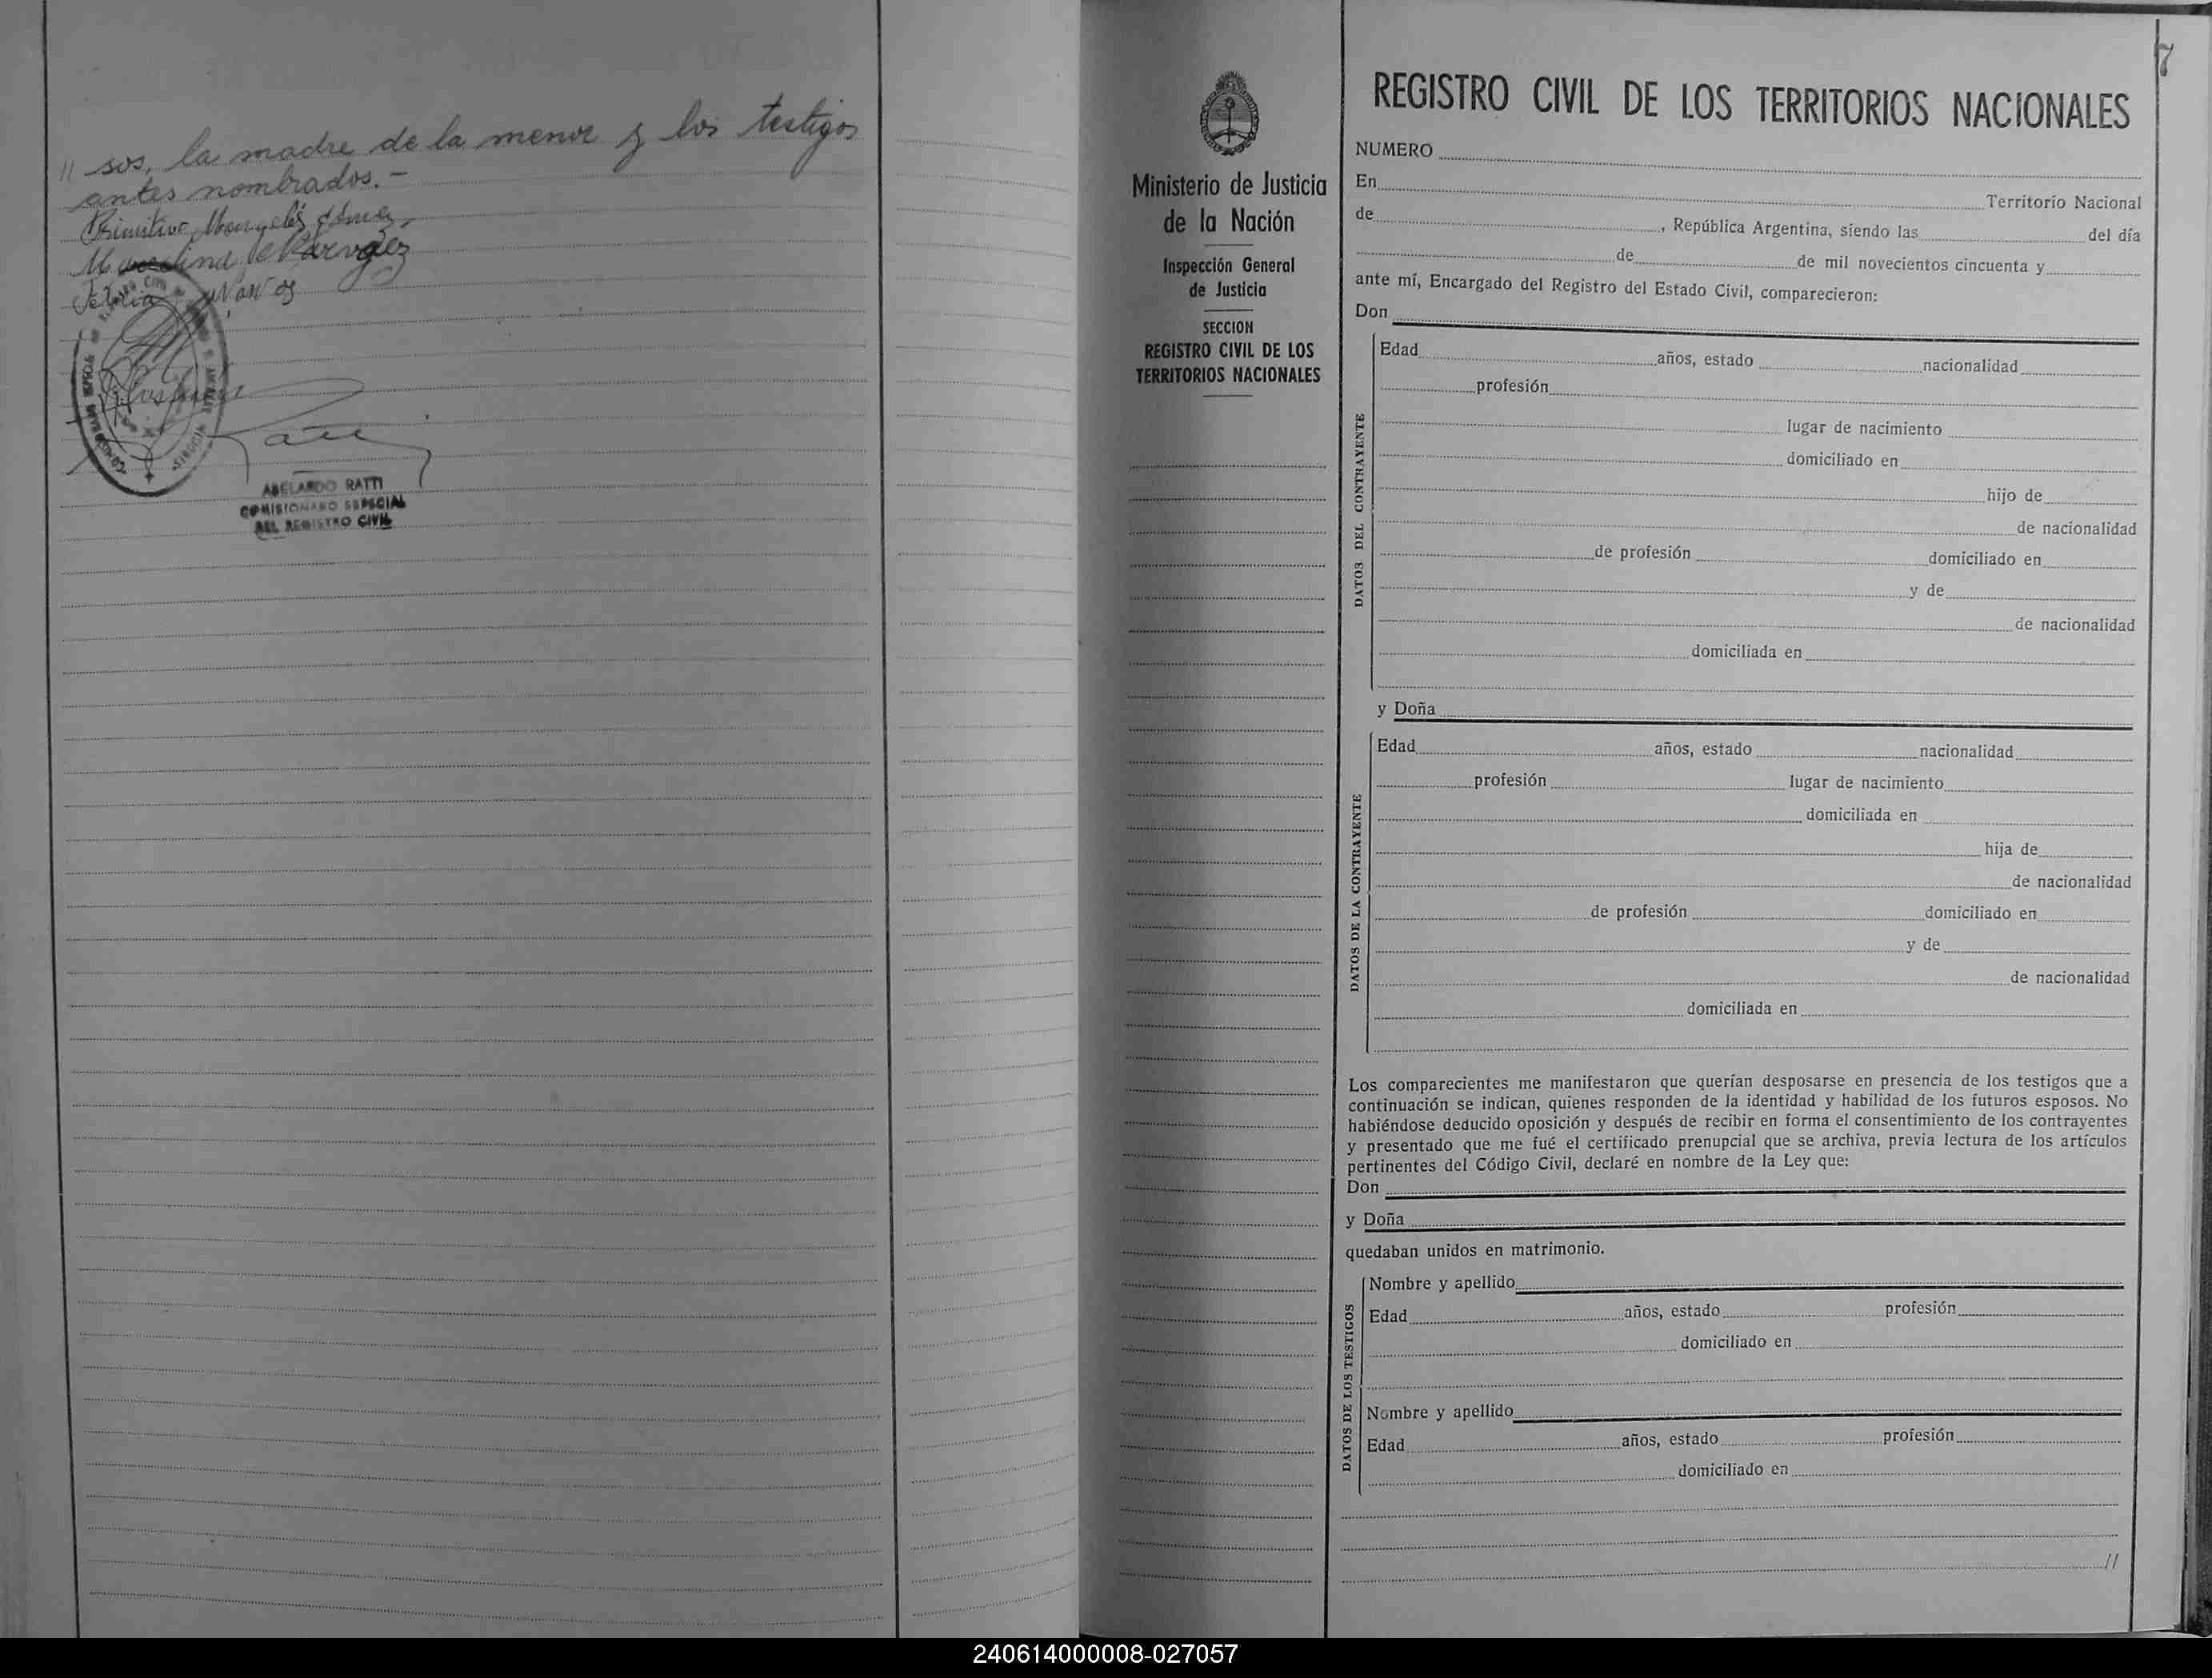 // sos, la madre de la menor y los testigos
antes nombrados.-
Primitivo
Narvaez
ABELARDO RATTI
COMISIONADO ESPECIAL
DEL REGISTRO CIVIL
7
Ministerio de Justicia
de la Nación
Inspección General
de Justicia
SECCION
REGISTRO CIVIL DE LOS
TERRITORIOS NACIONALES
REGISTRO CIVIL DE LOS TERRITORIOS NACIONALES
NUMERO
En Territorio Nacional
de , República Argentina, siendo las del día
de de mil novecientos cincuenta y
ante mí, Encargado del Registro del Estado Civil, comparecieron:
Don
DATOS DEL CONTRAYENTE
Edad años, estado nacionalidad
profesión
lugar de nacimiento
domiciliado en
hijo de
de nacionalidad
de profesión domiciliado en
y de
de nacionalidad
domiciliada en
y Doña
DATOS DE LA CONTRAYENTE
Edad años, estado nacionalidad
profesión lugar de nacimiento
domiciliada en
hija de
de nacionalidad
de profesión domiciliado en
y de
de nacionalidad
domiciliada en
Los comparecientes me manifestaron que querían desposarse en presencia de los testigos que a
continuación se indican, quienes responden de la identidad y habilidad de los futuros esposos. No
habiéndose deducido oposición y después de recibir en forma el consentimiento de los contrayentes
y presentado que me fué el certificado prenupcial que se archiva, previa lectura de los artículos
pertinentes del Código Civil, declaré en nombre de la Ley que:
Don
y Doña
quedaban unidos en matrimonio.
DATOS DE LOS TESTIGOS
Nombre y apellido
Edad años, estado profesión
domiciliado en
Nombre y apellido
Edad años, estado profesión
domiciliado en
//
240614000008-027057